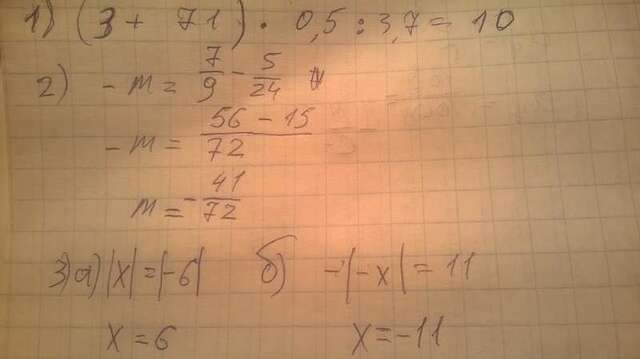 1) (3 + 71) · 0,5 : 3,7 = 10
2) - m = 7/9 - 5/24
- m = (56 - 15)/72
m = - 41/72
3) а) |x| = |-6| б) -|-x| = 11
x = 6 x = -11